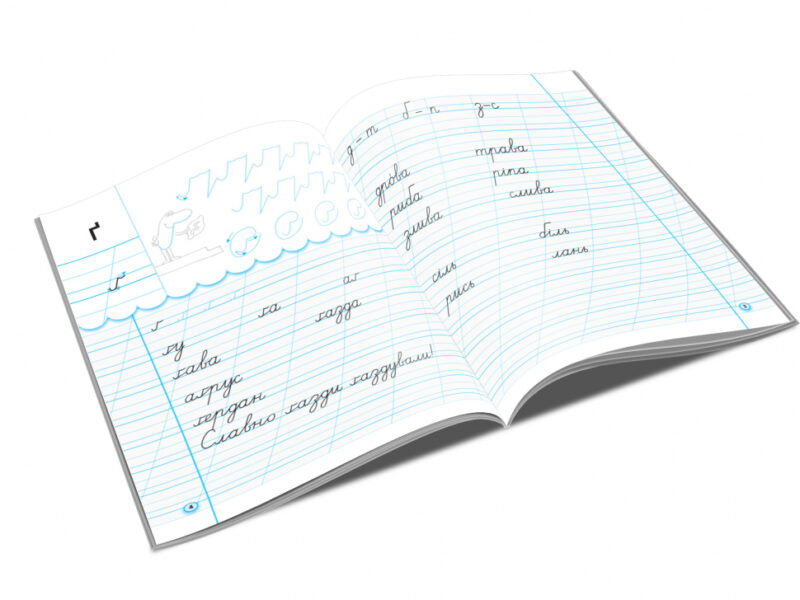 ґ
ґ
ґ ґа аґ
ґу ґазда
ґава
аґрус
ґердан
Славно ґазди ґаздували!
4
д – т б – п з – с
дро́ва трава
риба ріпа
злива слива
сіль біль
рись лань
5